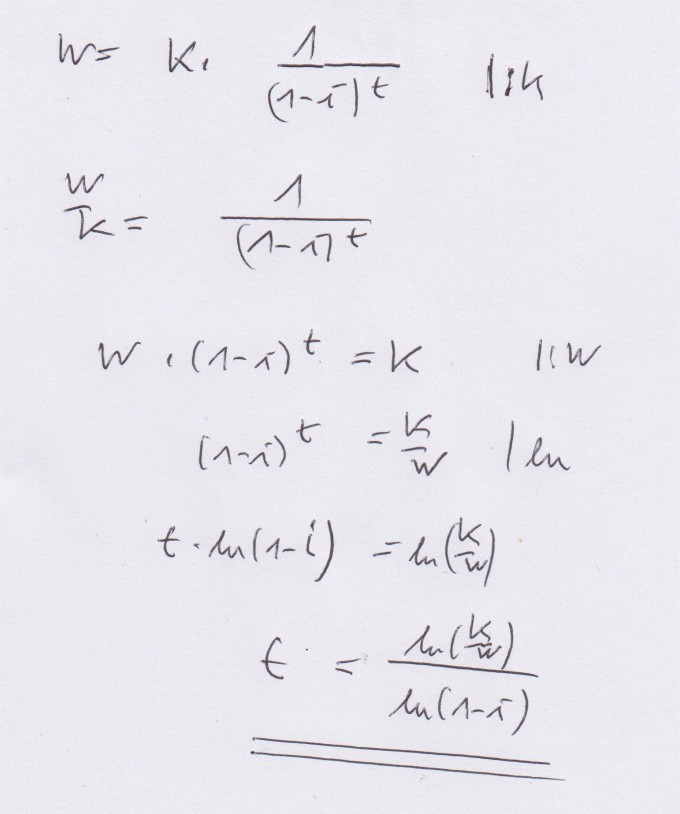 W = K · 1/(1-i)^t |:K
W/K = 1/(1-i)^t
W · (1-i)^t = K |:W
(1-i)^t = K/W | ln
t · ln(1-i) = ln(K/W)
t = ln(K/W)/ln(1-i)